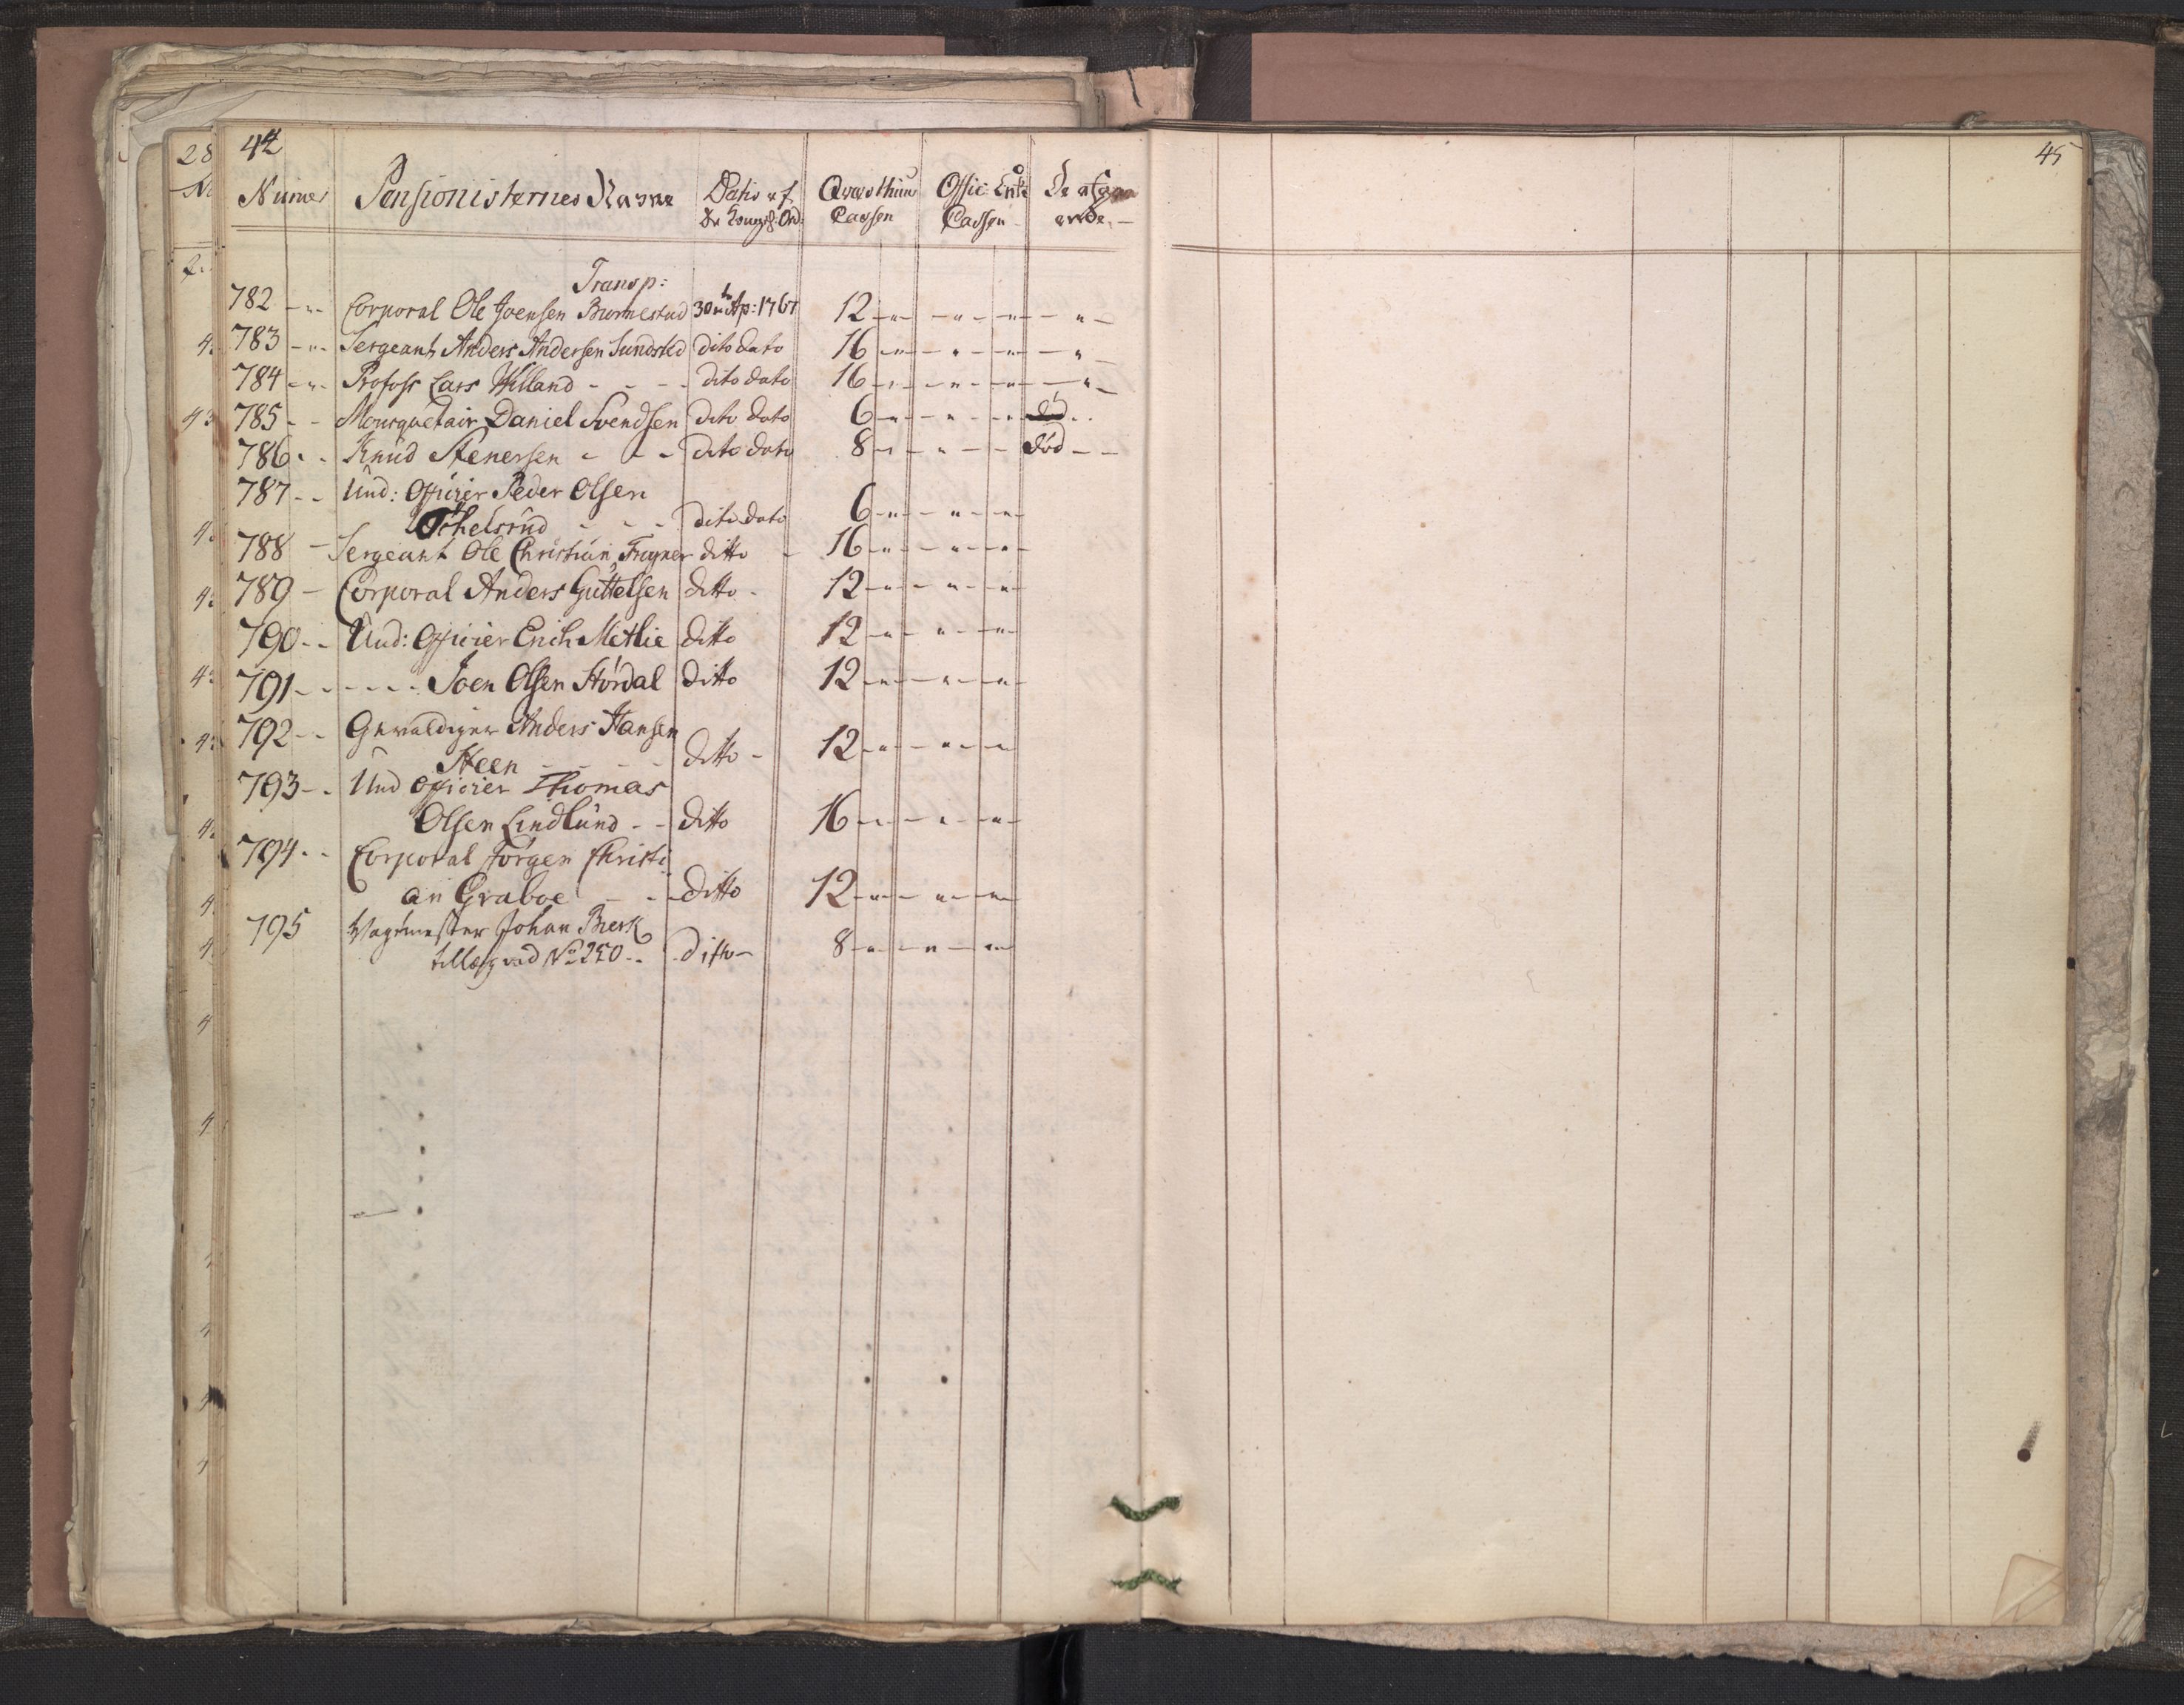 44
Numer Pensionisternes Navne Datis af Qvæsthuus Offic: Enke De afgaa
De Kongel: Ord: Cassen Cassen ende. —
Transp:
782 - „ - Corporal Ole Joensen Burmestad 30te Ap: 1767 12 - „ - - „ - - „ - - „ -
783 - „ - Sergeant Anders Andersen Sundsted dito dato 16 - „ - - „ - - „ - - „ -
784 - „ - Profoss Lars Willand - - - - dito dato 16 - „ - - „ - - „ - - „ -
785 - - Mousquetair Daniel Svendsen dito dato 6 - „ - - „ - - „ død - -
786 - - Knud Stenersen - - - dito dato 8 - „ - - „ - - død - -
787 - - Und: Officier Peder Olsen
- - - dito dato 6 - „ - - „ - - „ -
788 - Sergeant Ole Christian Frugner ditto - 16 - „ - - „ - - „ -
789 - Corporal Anders Guttelsen ditto - 12 - „ - - „ - - „ -
790 - - Und: Officier Erich Methie ditto 12 - „ - - „ - - „ -
791 - - - - - - Joen Olsen Stördal ditto 12 - „ - - „ - - „ -
792 - - Gewaldiger Anders Hansen
Steen - - - - ditto - 12 - „ - - „ - - „ -
793 - - Und Officier Thomas
Olsen Lindlund - - ditto 16 - „ - - „ - - „ -
794 - - Corporal Jørgen Christi
an Graboe - - - ditto 12 - „ - - „ - - „ -
795 Vagtmester Johan Bierk
tillæg ved No 250 - - ditto - 8 - „ - - „ - - „ -
45